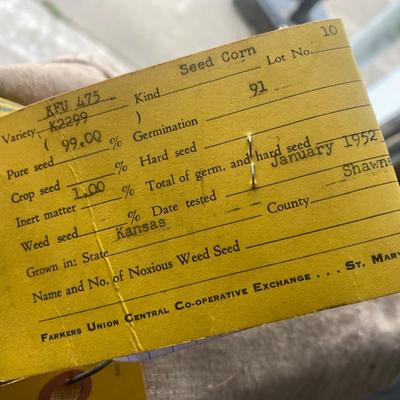 KFU 475 Kind Seed Corn Lot No. 10
Variety K2299
( 99.00 )
Pure seed % Germination 91
Crop seed % Hard seed
Inert matter 1.00 % Total of germ. and hard seed
Weed seed % Date tested January 1952
Grown in: State Kansas County Shawne
Name and No. of Noxious Weed Seed
Farmers Union Central Co-operative Exchange . . . St. Mary